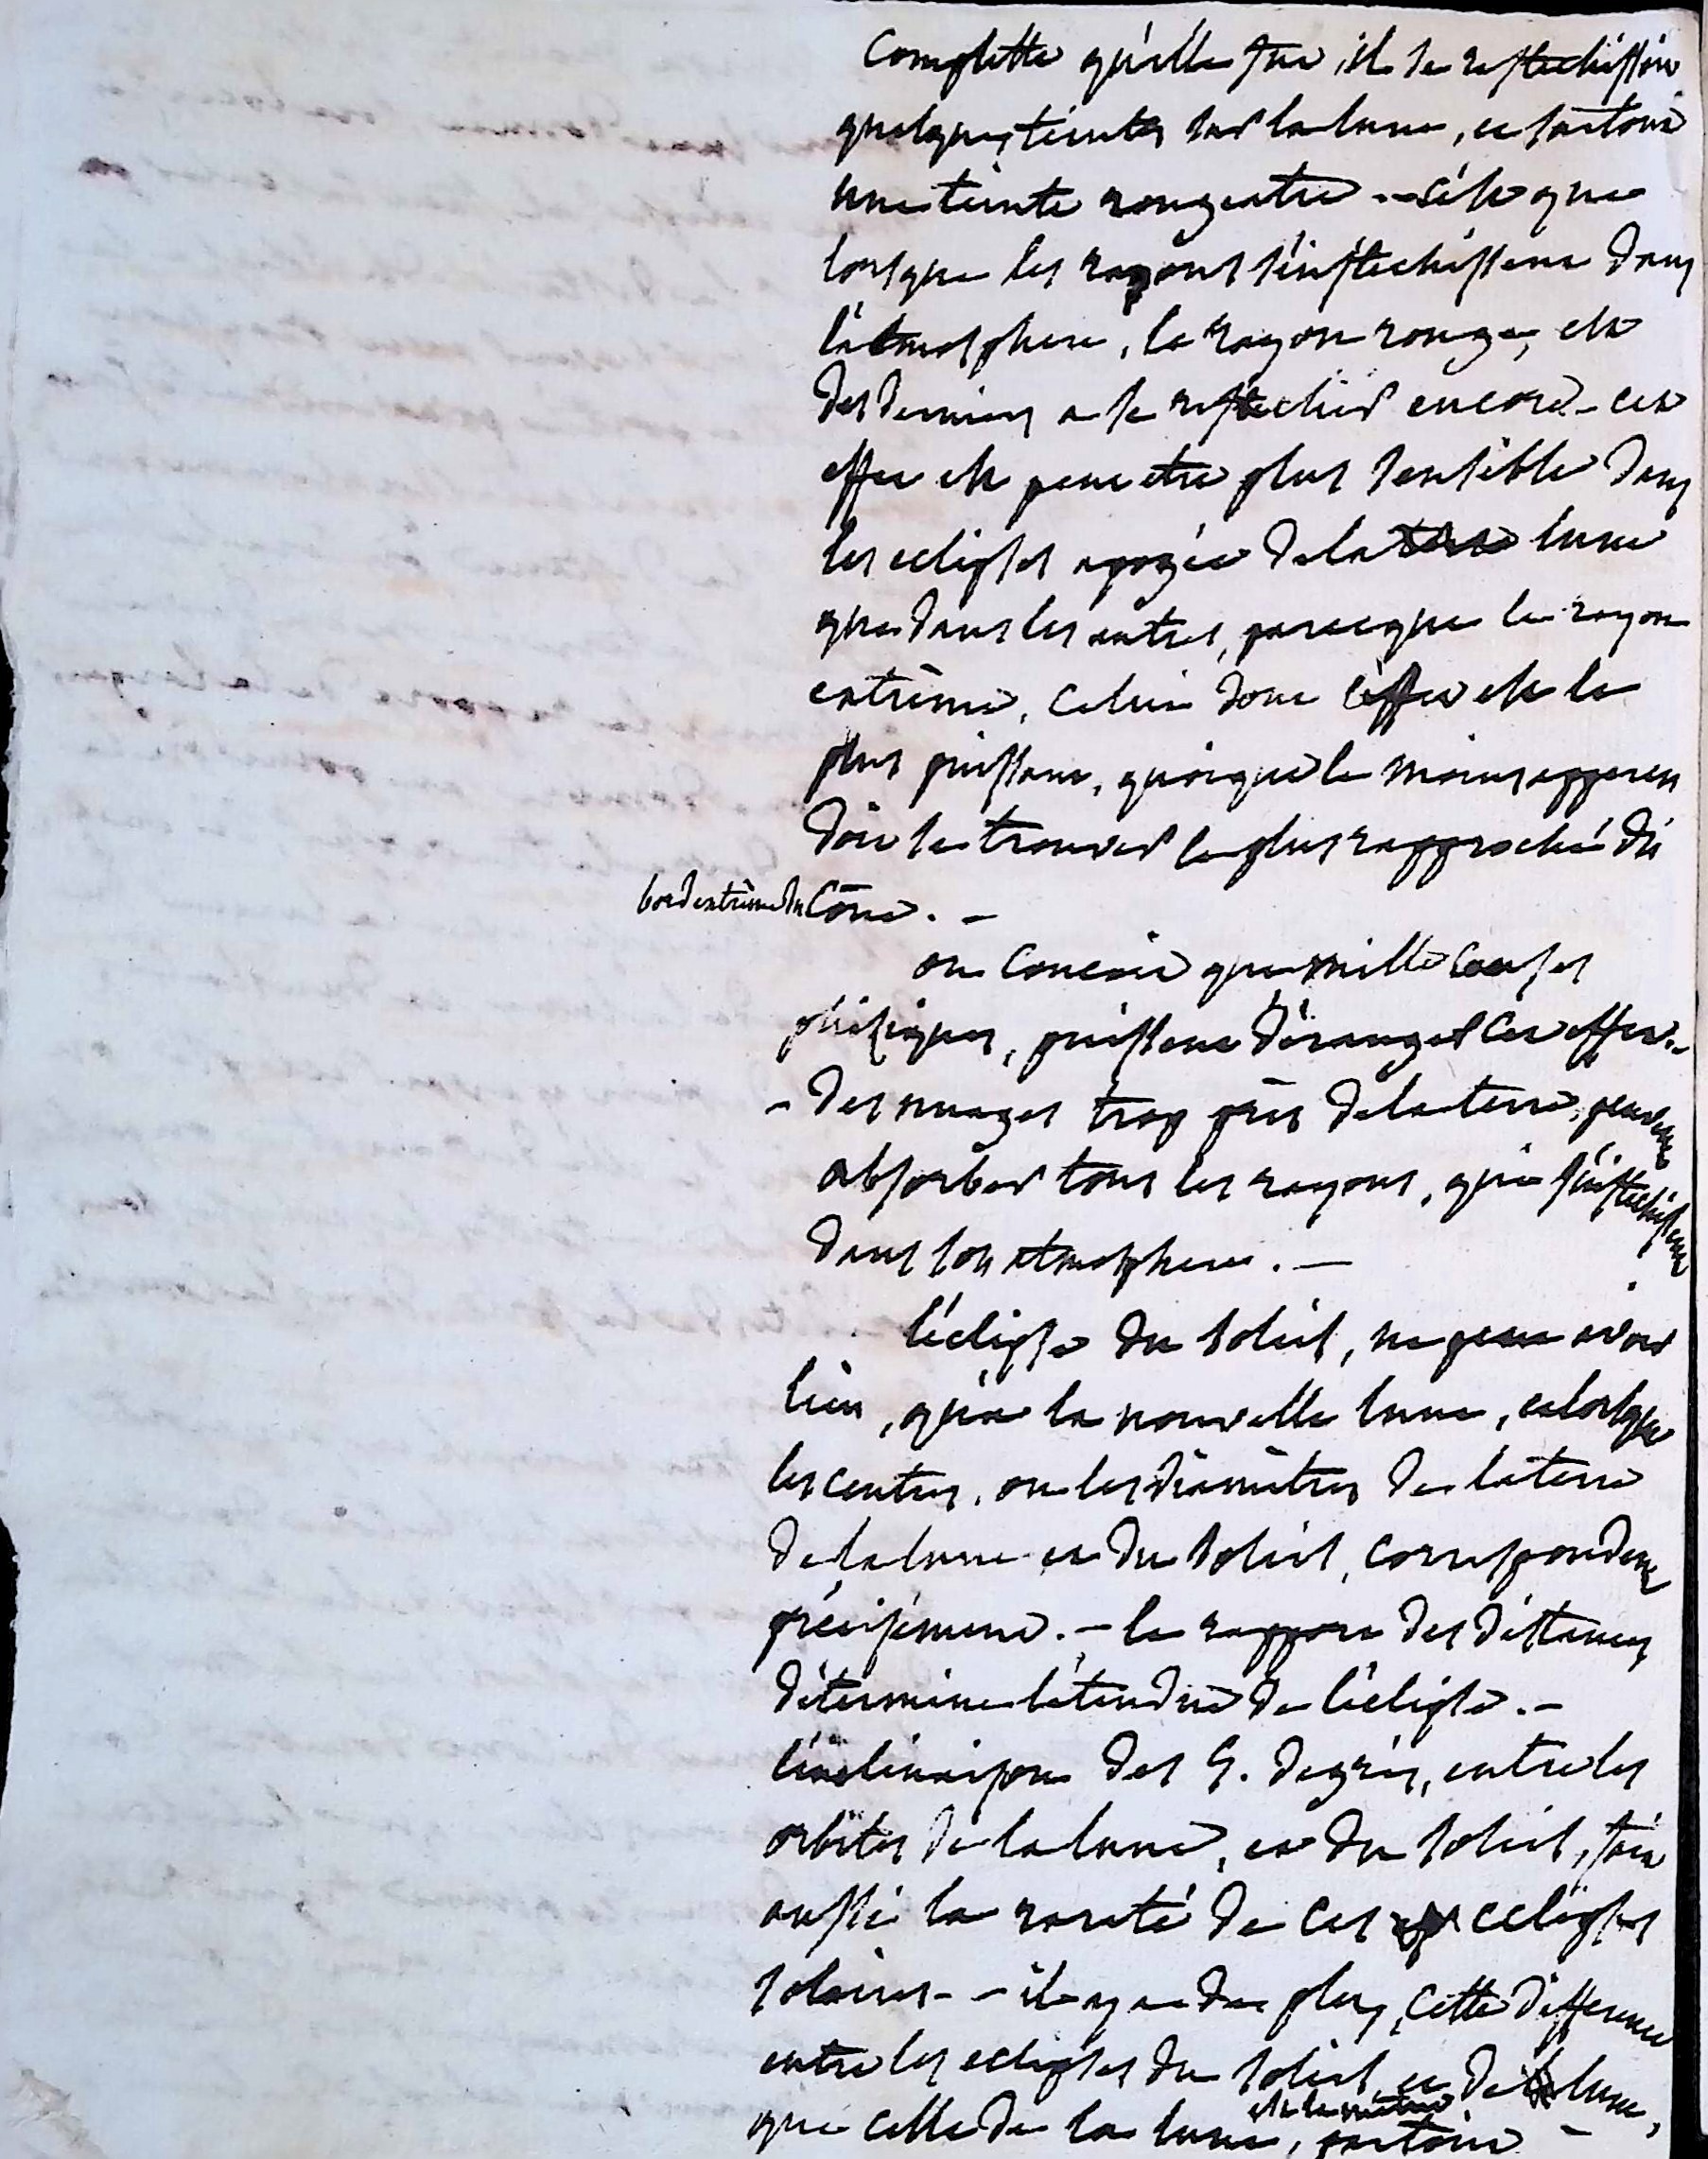 Complette qu'elle fut, il se reflechissoit
quelques teintes sur la lune, et surtout
une teinte rougeatre -- c'est que
lorsque les rayons s'inflechissent dans
l'atmosphere, le rayon rouge, est
des derniers a se reflechir encore - cet
effet est peut etre plus sensible dans
les eclipses apogée de la terre lune
que dans les autres, parceque le rayon
extrême, celui dont l'effet est le
plus puissant, quoique le moins apparent
doit se trouver le plus rapproché du
bord extrême du Cône. -
on concoit que mille causes
phisiques, puissent déranger ces effets.-
- des nuages trop près de la terre, peuvent
absorber tous les rayons, qui s'inflechissent
dans son atmosphere. -
l'éclipse du soleil, ne peut avoir
lieu, qu'a la nouvelle lune, et lorsque
les centres, ou les diamètres de la terre
de la lune et du soleil, correspondent
précisément. - le rapport des distances,
détermine l'étendue de l'éclipse. -
l'inclinaison des 5. degrés, entre les
orbites de la lune, et du soleil, fait
aussi la rareté de ces eclipses
solaires - - il y a de plus, cette difference
entre les eclipses du soleil, et de la lune,
est la même
que celle de la lune, partout -